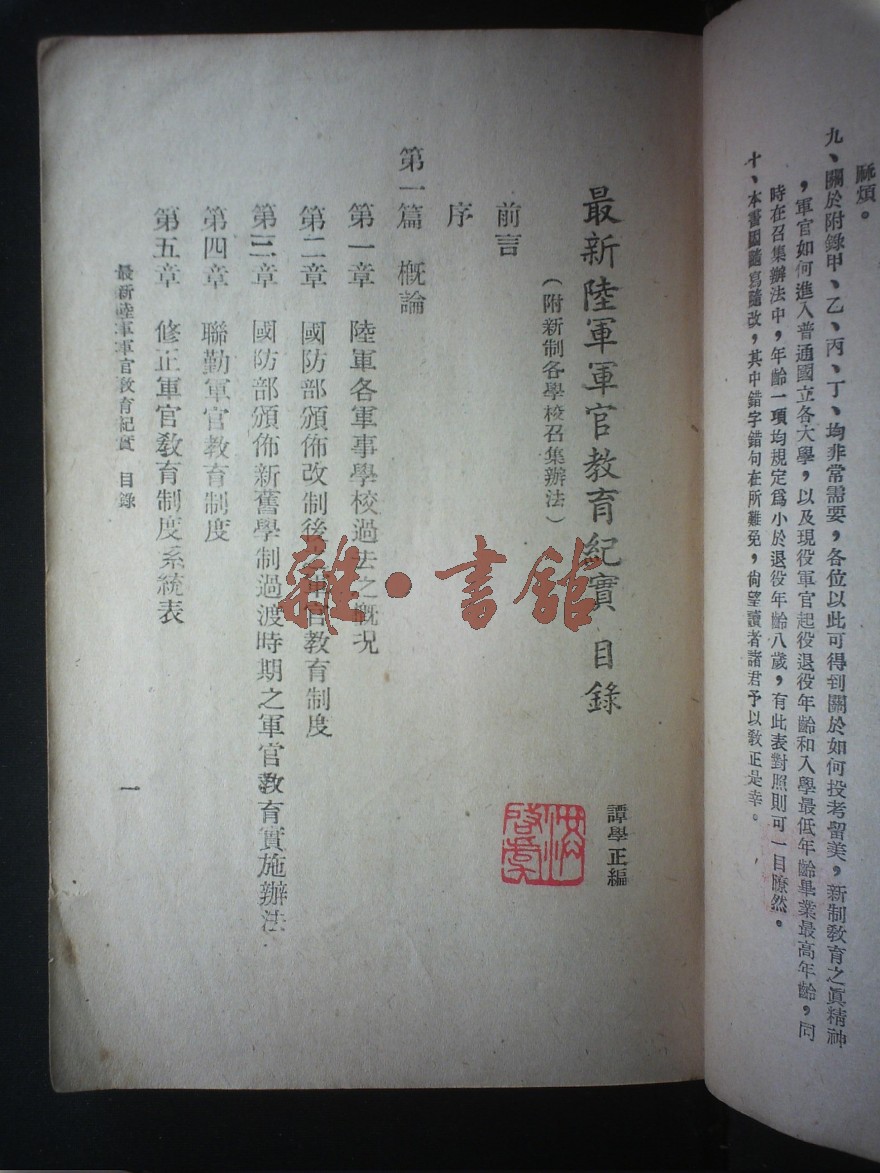 麻煩。
九、關於附錄甲、乙、丙、丁、均非常需要，各位以此可得到關於如何投考留美，新制教育之眞精神
，軍官如何進入普通國立各大學，以及現役軍官起役退役年齡和入學最低年齡畢業最高年齡，同
時在召集辦法中，年齡一項均規定爲小於退役年齡八歲，有此表對照則可一目瞭然。
十、本書因隨寫隨改，其中錯字錯句在所難免，尙望讀者諸君予以敎正是幸。
最新陸軍軍官教育紀實 目錄
（附新制各學校召集辦法）
譚學正編
前言
序
第一篇 概論
第一章 陸軍各軍事學校過去之概況
第二章 國防部頒佈改制後之軍官教育制度
第三章 國防部頒佈新舊學制過渡時期之軍官教育實施辦法
第四章 聯勤軍官教育制度
第五章 修正軍官教育制度系統表
最新陸軍軍官教育紀實 目錄
一
雜·書館